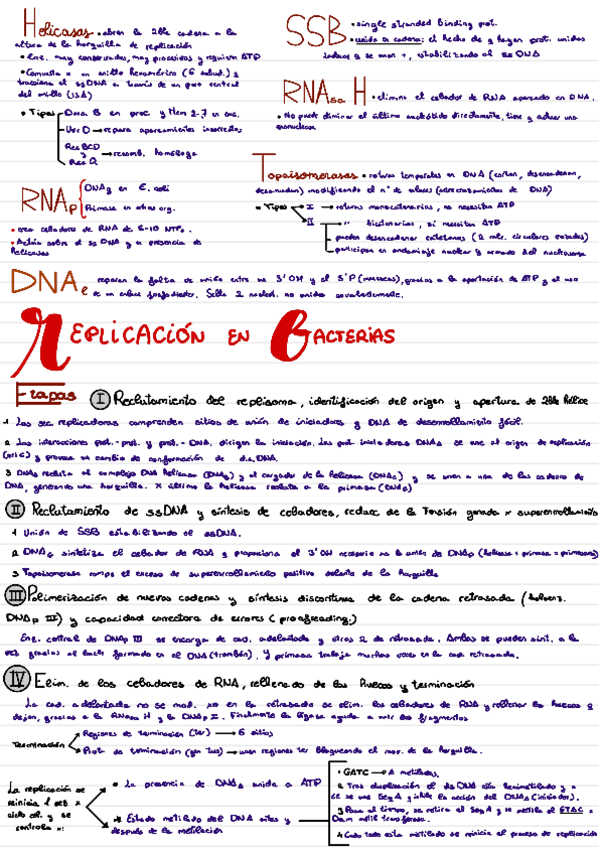 Helicasas • abren la 2ble cadena a la
altura de la horquilla de replicación
• Enz. muy conservadas, muy procesivas y requieren ATP
• Consiste en un anillo hexamérico (6 subud.) y
tracciona el ssDNA a través de un poro central
del anillo (13Å)
• Tipos
Dna B en proc. y Mcm 2-7 en euc.
Uvr D → repara apareamientos incorrectos
Rec BCD y Rec Q → recomb. homóloga
SSB • single stranded binding prot.
• unión en cadena: el hecho de q haya prot. unidas
induce a se unan +, estabilizando el ssDNA
RNAsa H • elimina el cebador de RNA apareado en DNA.
• No puede eliminar el último nucleótido directamente, tiene q actuar una
exonucleasa
Topoisomerasas • roturas temporales en DNA (cortan, desenredan,
desanudan) modificando el nº de enlaces (entrecruzamientos de DNA)
• Tipos
I → roturas monocatenarias, no necesitan ATP
II → " bicatenarias, sí necesitan ATP
pueden desencadenar catenanos (2 mlc. circulares enredadas)
participan en andamiaje nuclear y armado del nucleosoma
RNAp
DNAg en E. coli
Primasa en otros org.
• crea cebadores de RNA de 6-10 NTPs.
• Actúa sobre el ssDNA y en presencia de
helicasas
DNAe reparan la falta de unión entre un 3'OH y el 5'P (muescas), gracias a la aportación de ATP y al uso
de un enlace fosfodiéster. Sella 2 nucleot. no unidos covalentemente.
REPLICACIÓN EN BACTERIAS
Etapas
I Reclutamiento del replisoma, identificación del origen y apertura de 2ble hélice
1 Las sec. replicadoras comprenden sitios de unión de iniciadores y DNA de desenrollamiento fácil.
2 Las interacciones prot.-prot. y prot.-DNA, dirigen la iniciación. Las prot. iniciadoras DNAA se une al origen de replicación
(oriC) y provoca un cambio de conformación de dsDNA.
3 DNAA recluta al complejo DNA helicasa (DNAB) y al cargador de la helicasa (DNAC) y se unen a una de las cadenas de
DNA, generando una horquilla. X último la helicasa recluta a la primasa (DNAG)
II Reclutamiento de ssDNA y síntesis de cebadores, reduce de la tensión ganada x superenrollamiento
1 Unión de SSB estabilizando el ssDNA.
2 DNAG sintetiza el cebador de RNA y proporciona el 3'OH necesario xa la unión de DNAp (helicasa + primasa = primosoma)
3 Topoisomerasa rompe el exceso de superenrollamiento positivo delante de la horquilla
III Polimerización de nuevas cadenas y síntesis discontinua de la cadena retrasada (holoenz.
DNAp III) y capacidad correctora de errores (proofreading)
Enz. central de DNAp III se encarga de cad. adelantada y otras 2 de retrasada. Ambas se pueden sint. a la
vez gracias al bucle formado en el DNA (trombón). Y primasa trabaja muchas veces en la cad. retrasada.
IV Elim. de los cebadores de RNA, rellenado de los huecos y terminación
La cad. adelantada no se mod. xo en la retrasada se elim. los cebadores de RNA y rellenar los huecos q
dejan, gracias a la RNasa H y la DNAp I. Finalmente la ligasa ayuda a unir los fragmentos
Terminación
Regiones de terminación (ter) → 6 sitios
Prot. de terminación (gen tus) → unen regiones ter bloqueando el mov. de la horquilla.
La replicación se
reinicia 1 vez x
ciclo cel. y se
controla x:
• La presencia de DNAA unida a ATP
• Estado metilado del DNA antes y
después de la metilación
• GATC → A metiladas.
2 Tras duplicación el dsDNA está hemimetilado y a
él se une SeqA y inhibe la acción del DNAA (iniciador).
3 Pasa el tiempo, se retira el SeqA y se metila el GTAC x
Dam metil transferasa.
4 Cuando todo está metilado se reinicia el proceso de replicación